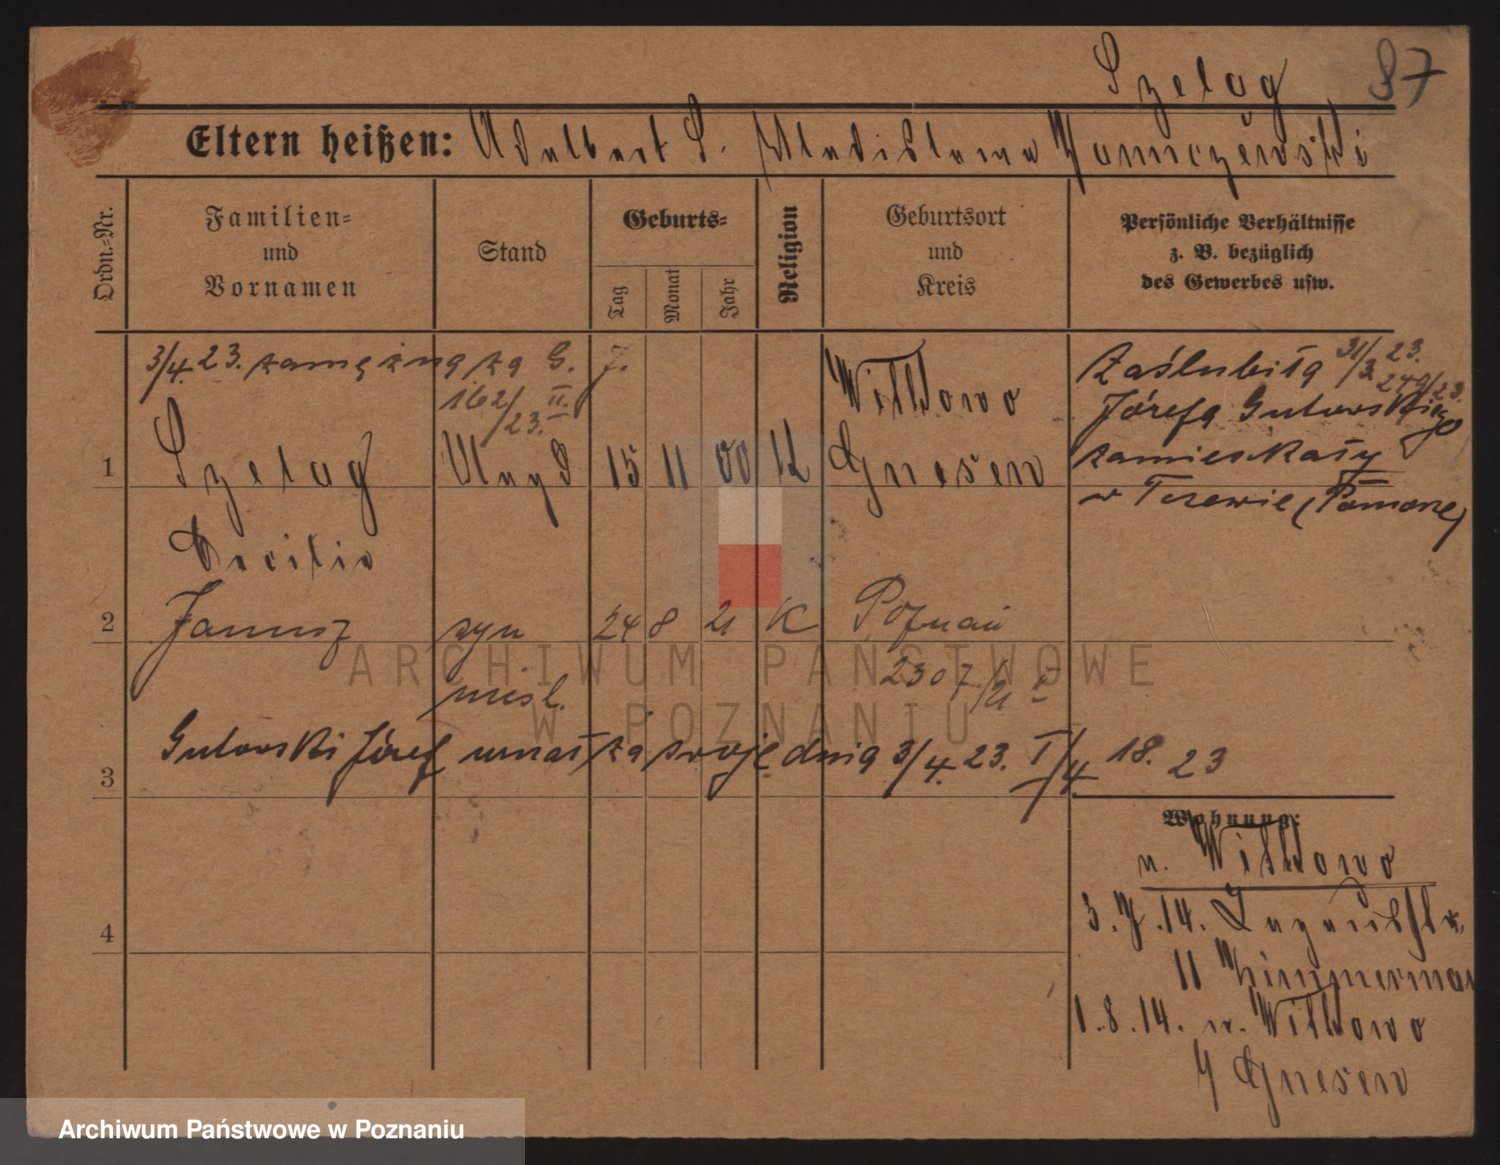 Szelag 87
Eltern heißen: Adalbert S. Wladislawa Tomczewski
Ordn.=Nr.
Familien=
und
Vornamen
Stand
Geburts=
Tag
Monat
Jahr
Religion
Geburtsort
und
Kreis
Persönliche Verhältnisse
z. B. bezüglich
des Gewerbes usw.
3/4. 23. zamężna za G. J.
162/23. II.
1
Szelag
Magd
15 11 00 K
Witkowo
Gnesen
Cecilia
Zaślubiła 31/3 23.
249/23.
Józefa Gutowskiego
zamieszkały
w Tczewie (Pomorze)
2
Janusz
syn
24 8 21 K
Poznań
nieśl.
2307/21 I
3
Gutowski Józef uznał za swoje dnia 3/4. 23. I/4 18. 23
4
Wohnung:
n. Witkowo
3. 7. 14.
11 Zimmermann
1. 8. 14. n. Witkowo
Gnesen
ARCHIWUM PAŃSTWOWE
W POZNANIU
Archiwum Państwowe w Poznaniu